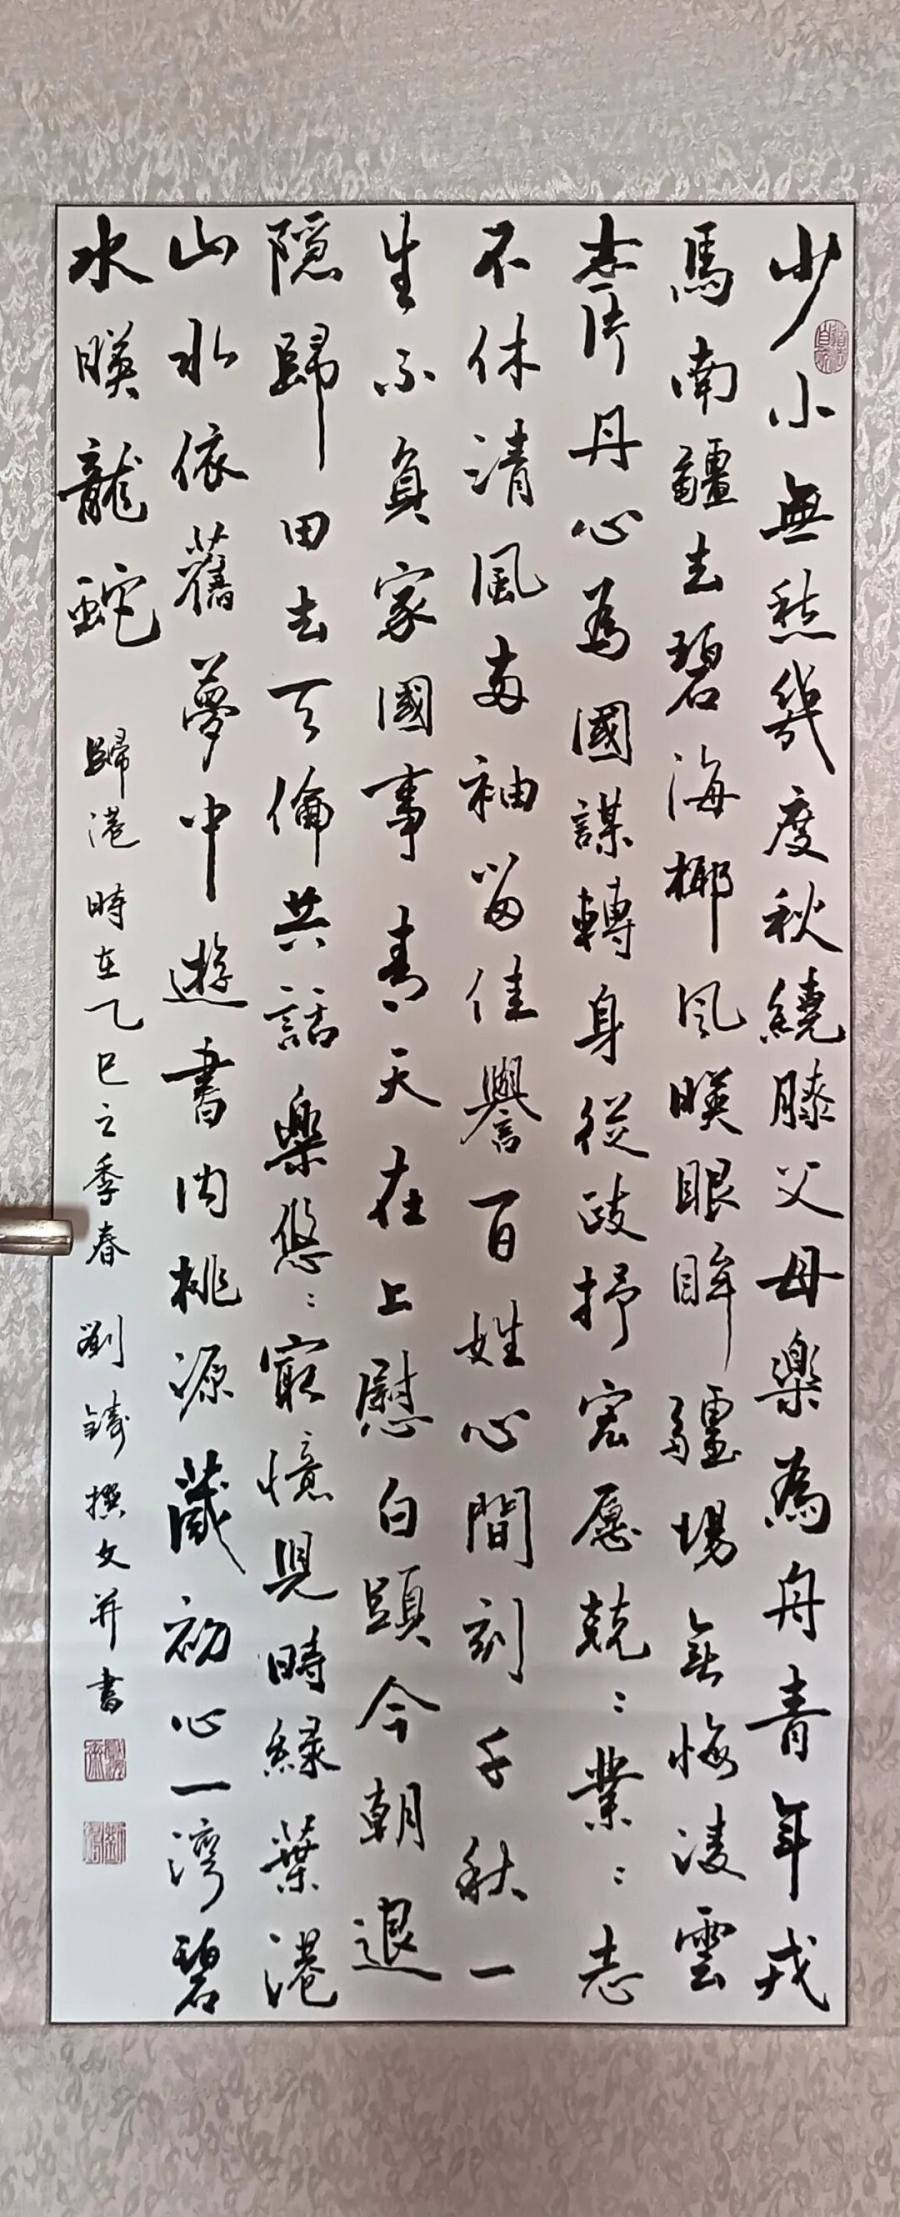 少小無愁幾度秋繞膝父母樂為舟青年戎
馬南疆去碧海椰風暎眼眸疆場無悔凌雲
志片丹心為國謀轉身從政抒宏愿兢：業：志
不休清風兩袖留佳譽百姓心間刻千秋一
生不負家國事青天在上慰白頭今朝退
隱歸田去天倫共話樂悠：最憶兒時綠葉港
山水依舊夢中遊書内桃源藏初心一灣碧
水暎龍蛇
歸港 時在乙巳之季春 劉鑄撰文并書